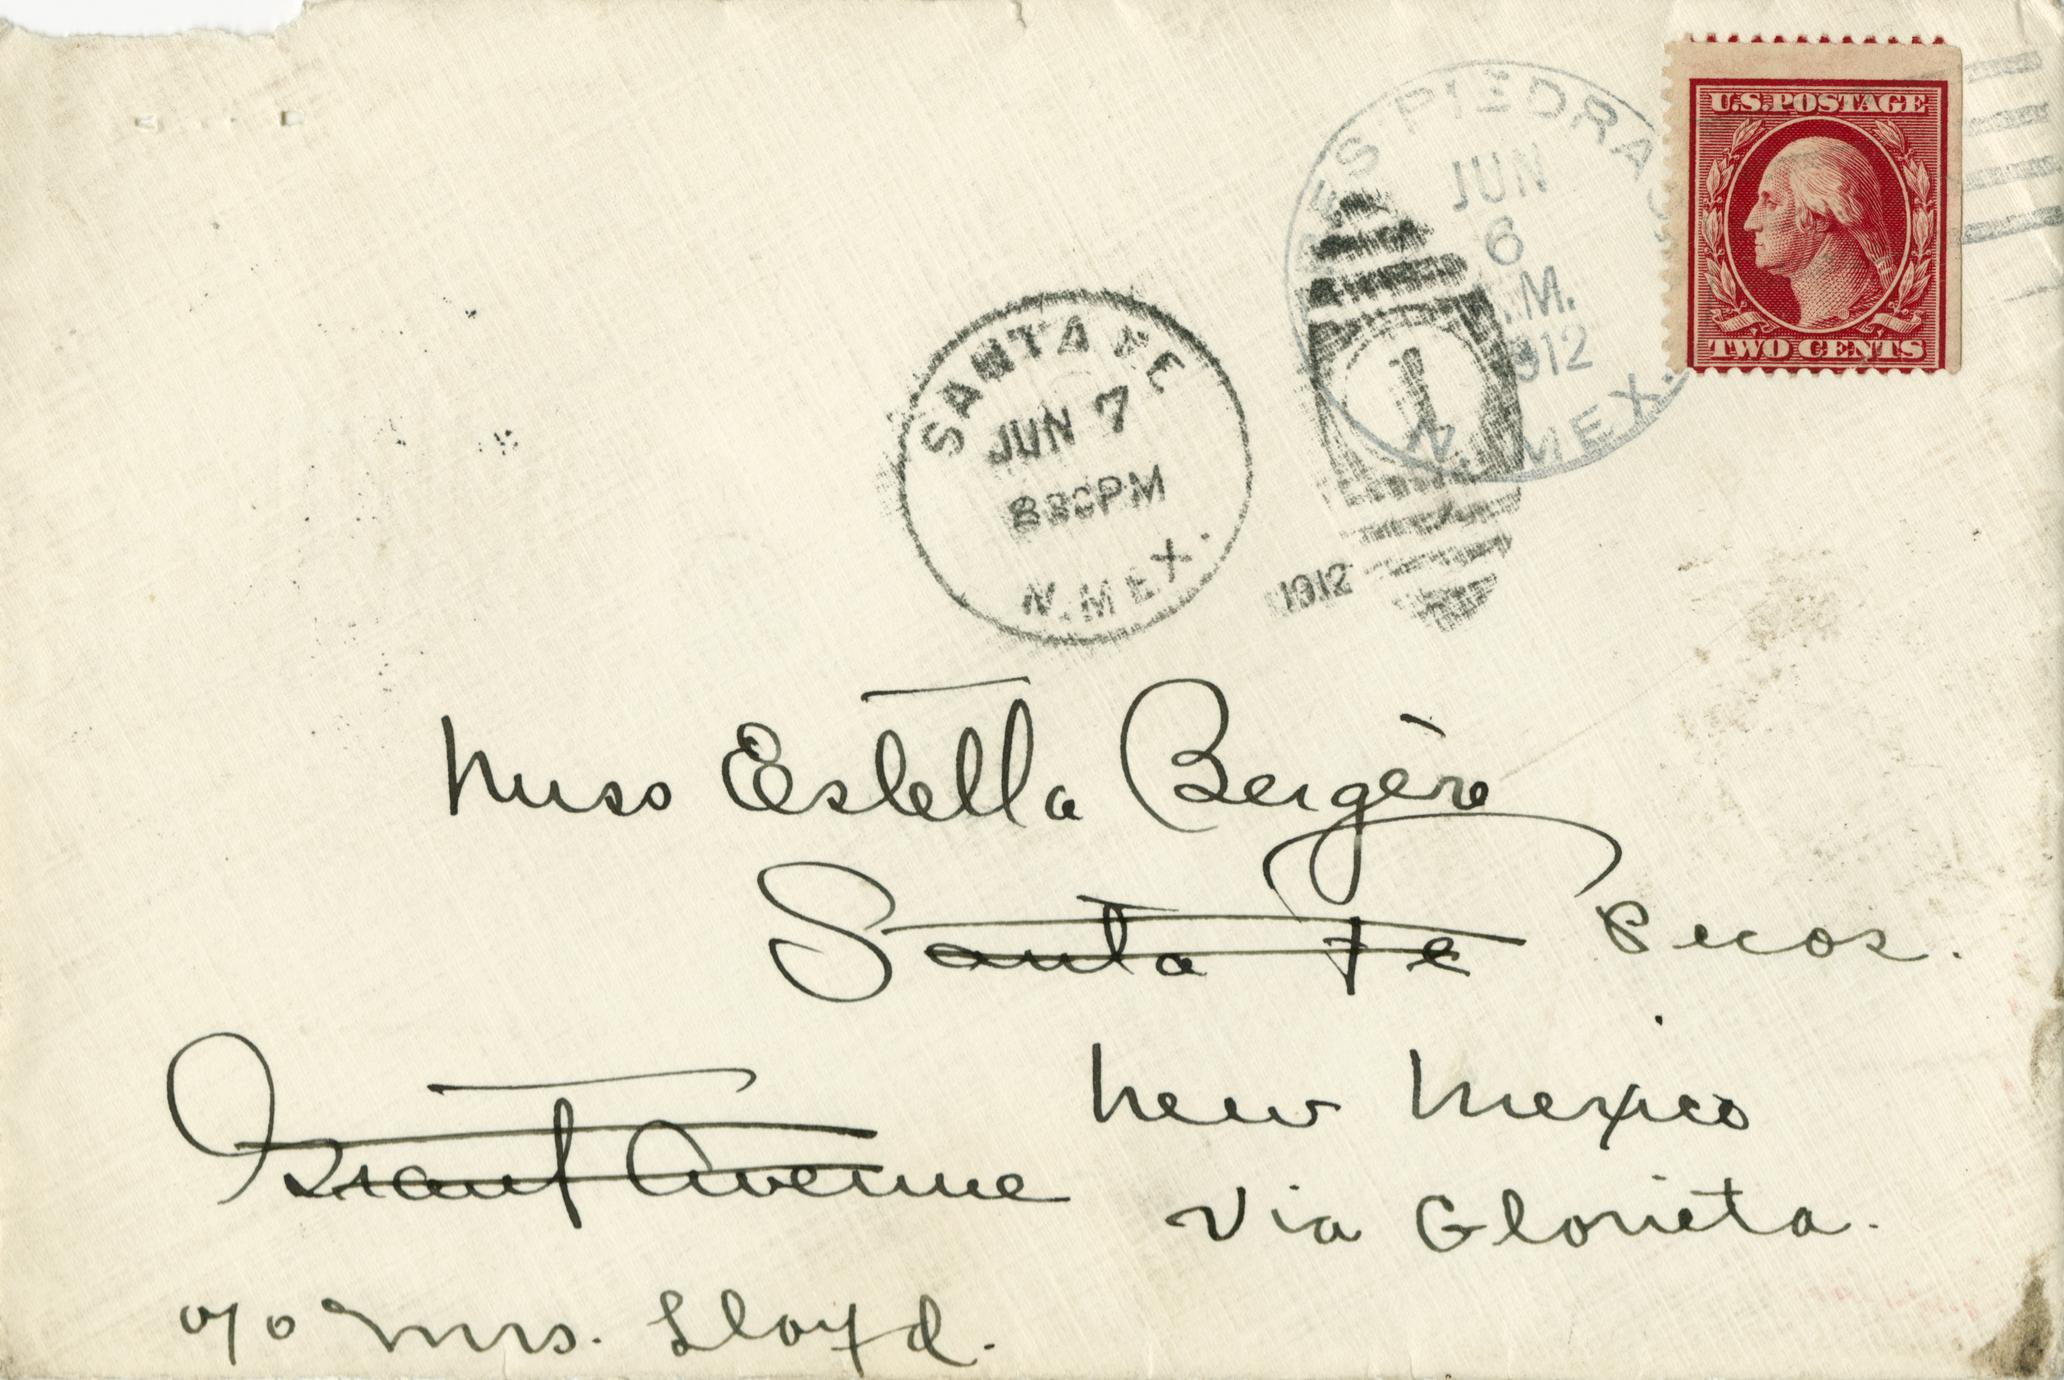 U.S. POSTAGE
TWO CENTS
TRES PIEDRAS
JUN
6
M.
1912
N. MEX.
SANTA FE
JUN 7
830PM
N. MEX.
1
1912
Miss Estella Bergère
Santa Fe Pecos.
New Mexico
Grant Avenue
Via Glorieta.
c/o Mrs. Lloyd.